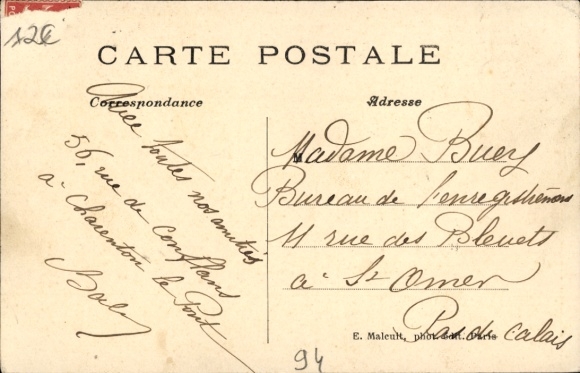 12€
CARTE POSTALE
Correspondance
Adresse
Avec toutes nos amitiés
56, rue de conflans
à Charenton le Pont
Madame Buery
Bureau de l'enregistrement
11 rue des Bleuets
à St Omer
Pas de Calais
E. Malcuit, phot. édit. Paris
94